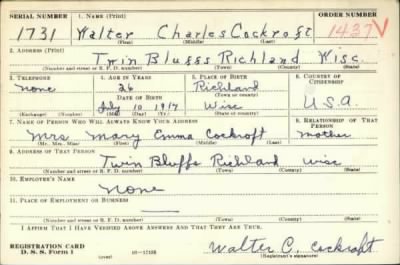 SERIAL NUMBER 1. NAME (Print) ORDER NUMBER
1731 Walter Charles Cockroft 1437V
(First) (Middle) (Last)
2. ADDRESS (Print)
Twin Bluffs Richland Wisc.
(Number and street or R. F. D. number) (Town) (County) (State)
3. TELEPHONE 4. AGE IN YEARS 5. PLACE OF BIRTH 6. COUNTRY OF CITIZENSHIP
none 26 Richland
DATE OF BIRTH (Town or county)
July 10 1914 Wisc U.S.A.
(Exchange) (Number) (Mo.) (Day) (Yr.) (State or country)
7. NAME OF PERSON WHO WILL ALWAYS KNOW YOUR ADDRESS 8. RELATIONSHIP OF THAT PERSON
Mrs Mary Emma Cockroft mother
(Mr., Mrs., Miss) (First) (Middle) (Last)
9. ADDRESS OF THAT PERSON
Twin Bluffs Richland wisc
(Number and street or R. F. D. number) (Town) (County) (State)
10. EMPLOYER'S NAME
none
11. PLACE OF EMPLOYMENT OR BUSINESS
(Number and street or R. F. D. number) (Town) (County) (State)
I AFFIRM THAT I HAVE VERIFIED ABOVE ANSWERS AND THAT THEY ARE TRUE.
REGISTRATION CARD Walter C. Cockroft
D. S. S. Form 1 (over) (Registrant's signature)